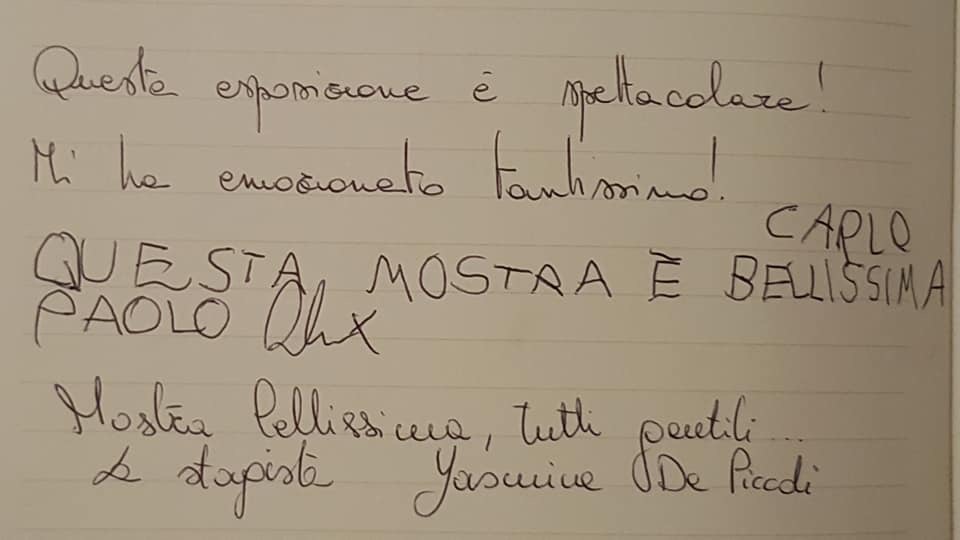 Questa esposizione è spettacolare!
Mi ha emozionato tantissimo!
CARLO
QUESTA MOSTRA È BELLISSIMA
PAOLO
Mostra bellissima, tutti gentili...
La stagista Yasmine De Piccoli